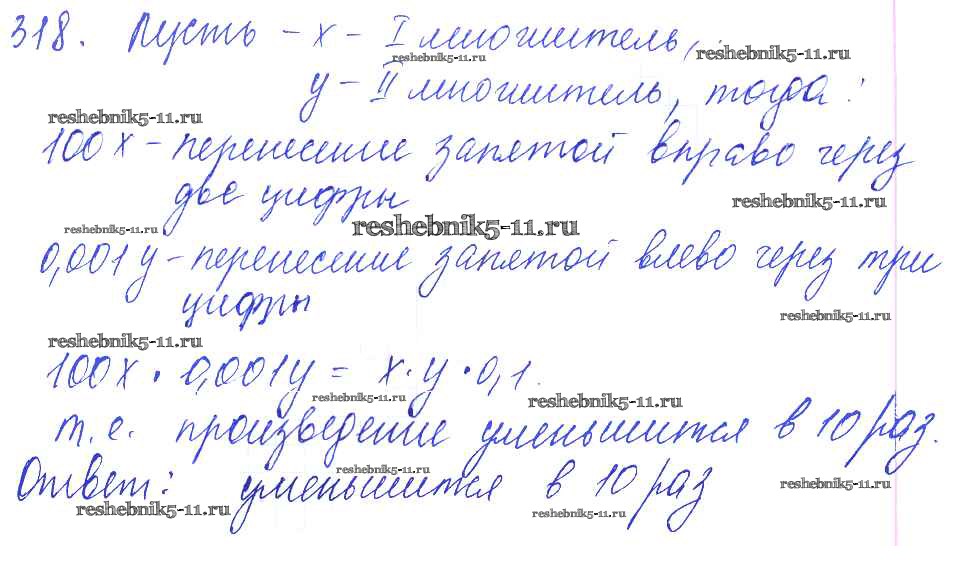 318. Пусть - x - I множитель,
reshebnik5-11.ru
reshebnik5-11.ru
y - II множитель, тогда:
reshebnik5-11.ru
100x - перенесение запятой вправо через
две цифры
reshebnik5-11.ru
reshebnik5-11.ru
reshebnik5-11.ru
0,001y - перенесение запятой влево через три
цифры
reshebnik5-11.ru
reshebnik5-11.ru
100x · 0,001y = x · y · 0,1.
reshebnik5-11.ru
reshebnik5-11.ru
т.е. произведение уменьшится в 10 раз.
reshebnik5-11.ru
Ответ: уменьшится в 10 раз
reshebnik5-11.ru
reshebnik5-11.ru
reshebnik5-11.ru